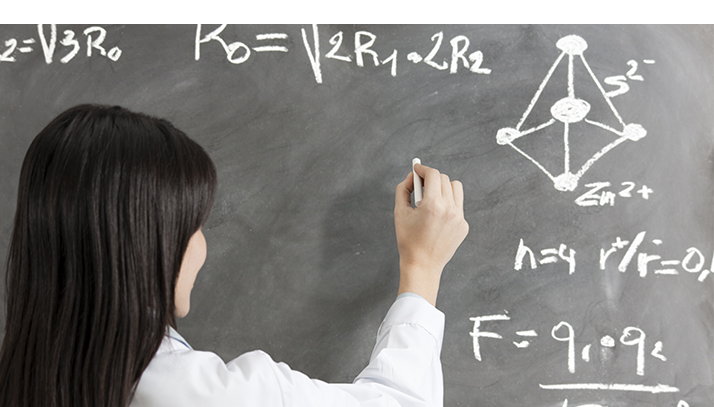 2=√3R₀
R₀=√2R₁·2R₂
S²⁻
Zn²⁺
n=4 r⁺/r⁻=0,
F=q₁·q₂